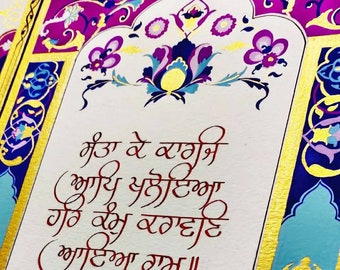 ਸੰਤਾ ਕੇ ਕਾਰਜਿ
ਆਪਿ ਖਲੋਇਆ
ਹਰਿ ਕੰਮ ਕਰਾਵਣਿ
ਆਇਆ ਰਾਮ॥